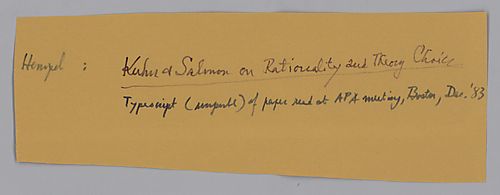 Hempel : Kuhn & Salmon on Rationality and Theory Choice
Typescript (incomplete) of paper read at APA meeting, Boston, Dec. '83